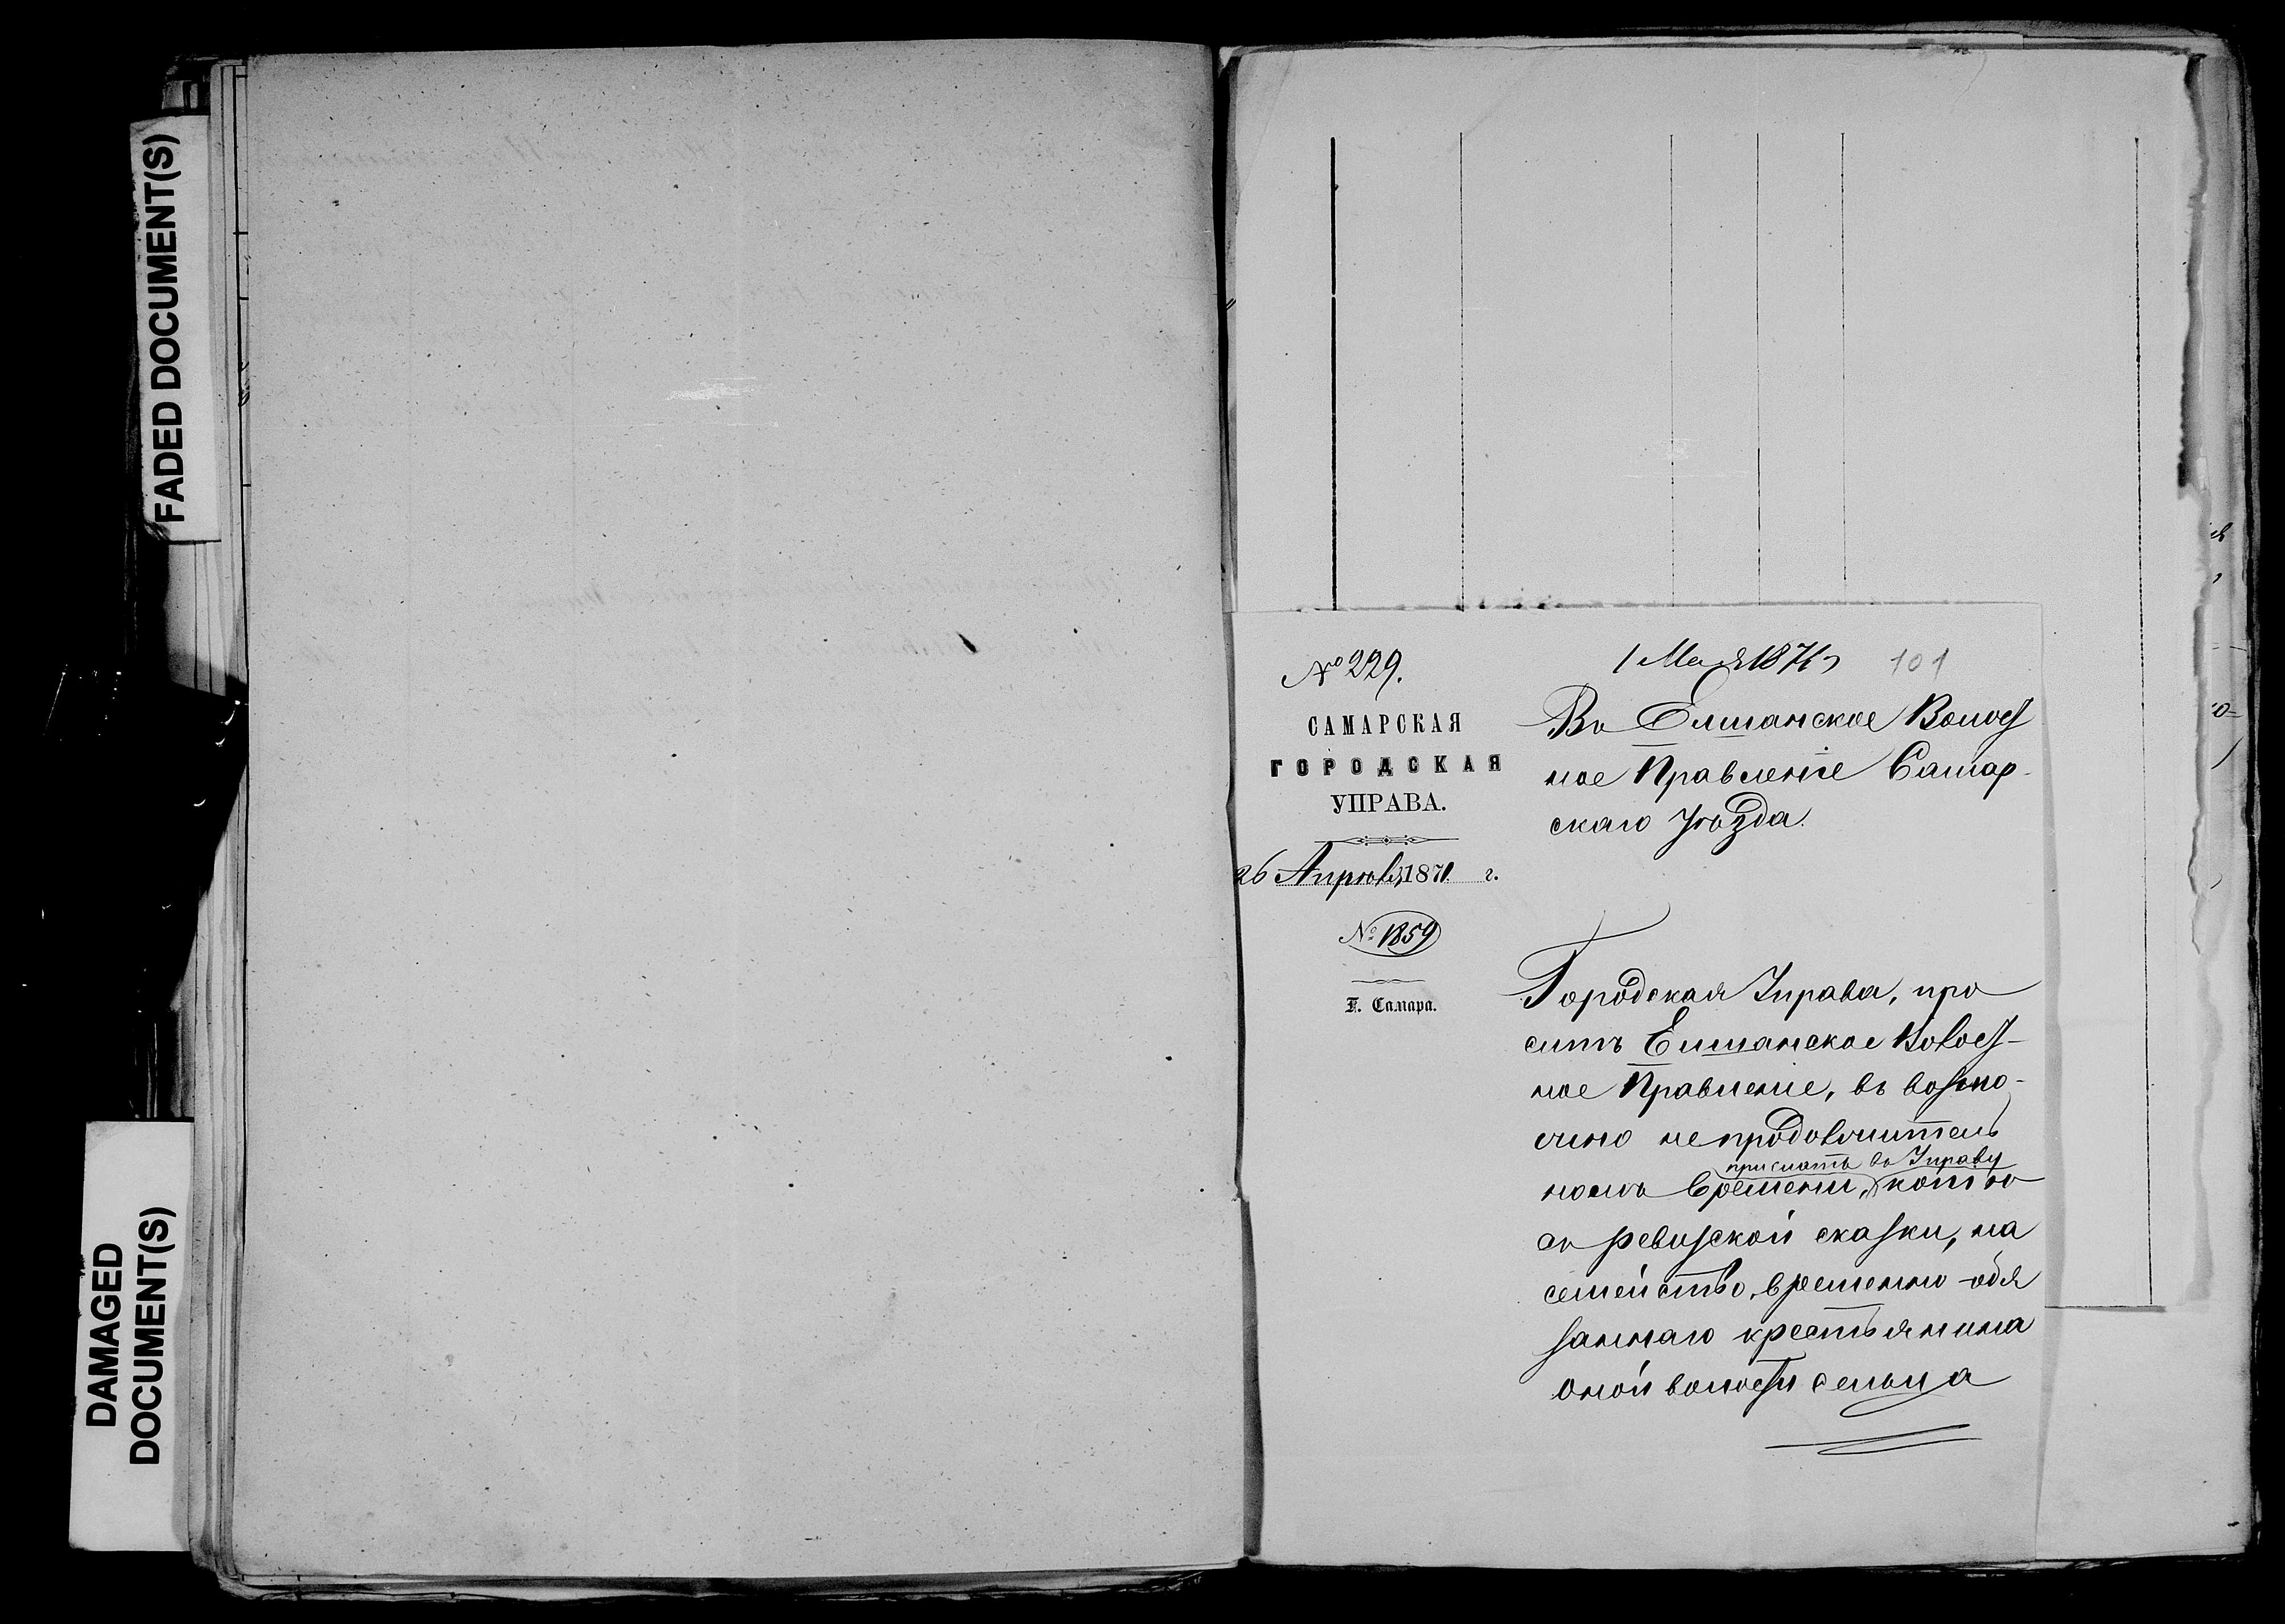 FADED DOCUMENT(S)
DAMAGED
DOCUMENT(S)
№ 229.
САМАРСКАЯ
ГОРОДСКАЯ
УПРАВА.
26 Апрѣля 1871 г.
№ 1859
Г. Самара.
1 Мая 1871 101
Въ Елшанское Волост
ное Правленіе Самар-
скаго Уѣзда.
Городская Управа, про
ситъ Елшанское Волост-
ное Правленіе, въ возмо-
жно непродолжитель
номъ времени, прислать въ Управу копію
съ ревизской сказки, на
семейство, временно-обя
заннаго крестьянина
оной волости сельца